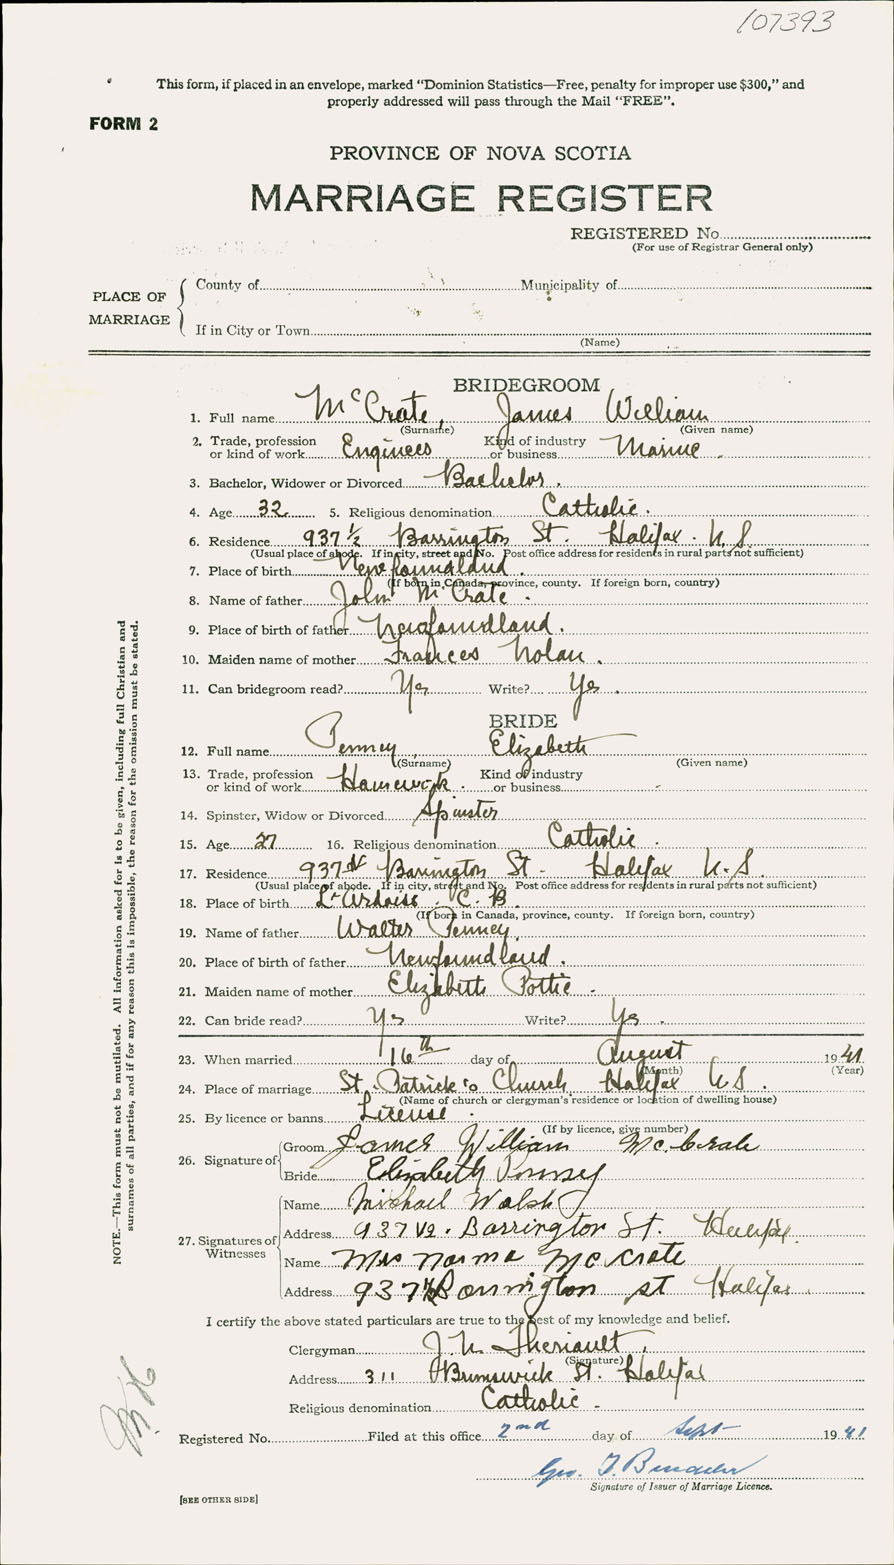 107393
This form, if placed in an envelope, marked “Dominion Statistics—Free, penalty for improper use $300,” and
properly addressed will pass through the Mail “FREE”.
FORM 2
PROVINCE OF NOVA SCOTIA
MARRIAGE REGISTER
REGISTERED No.
(For use of Registrar General only)
PLACE OF MARRIAGE
County of Municipality of
If in City or Town
(Name)
BRIDEGROOM
1. Full name McCrate, James William
(Surname) (Given name)
2. Trade, profession or kind of work Engineer Kind of industry or business Marine.
3. Bachelor, Widower or Divorced Bachelor.
4. Age 32 5. Religious denomination Catholic.
6. Residence 937 ½ Barrington St. Halifax. N.S
(Usual place of abode. If in city, street and No. Post office address for residents in rural parts not sufficient)
7. Place of birth Newfoundland.
(If born in Canada, province, county. If foreign born, country)
8. Name of father John McCrate.
9. Place of birth of father Newfoundland.
10. Maiden name of mother Frances Nolan.
11. Can bridegroom read? Yes Write? Yes.
BRIDE
12. Full name Penney, Elizabeth
(Surname) (Given name)
13. Trade, profession or kind of work Housework. Kind of industry or business -
14. Spinster, Widow or Divorced Spinster
15. Age 27 16. Religious denomination Catholic.
17. Residence 937 Barrington St - Halifax N.S.
(Usual place of abode. If in city, street and No. Post office address for residents in rural parts not sufficient)
18. Place of birth L'Ardoise. C.B.
(If born in Canada, province, county. If foreign born, country)
19. Name of father Walter Penney.
20. Place of birth of father Newfoundland.
21. Maiden name of mother Elizabeth Pottie.
22. Can bride read? Yes Write? Yes.
23. When married 16th day of August 1941
(Month) (Year)
24. Place of marriage St. Patrick's Church, Halifax N.S.
(Name of church or clergyman's residence or location of dwelling house)
25. By licence or banns License.
(If by licence, give number)
26. Signature of
Groom James William McCrate
Bride Elizabeth Penney
27. Signatures of Witnesses
Name Michael Walsh
Address 937 1/2. Barrington St. Halifax.
Name Mrs Norma McCrate
Address 937 1/2 Barrington st Halifax.
I certify the above stated particulars are true to the best of my knowledge and belief.
Clergyman J. N. Theriault.
(Signature)
Address 311 Brunswick St. Halifax
Religious denomination Catholic.
Registered No. Filed at this office 2nd day of Sept 1941
Geo. T.
Signature of Issuer of Marriage Licence.
[SEE OTHER SIDE]
NOTE.—This form must not be mutilated. All information asked for is to be given, including full Christian and
surnames of all parties, and if for any reason this is impossible, the reason for the omission must be stated.